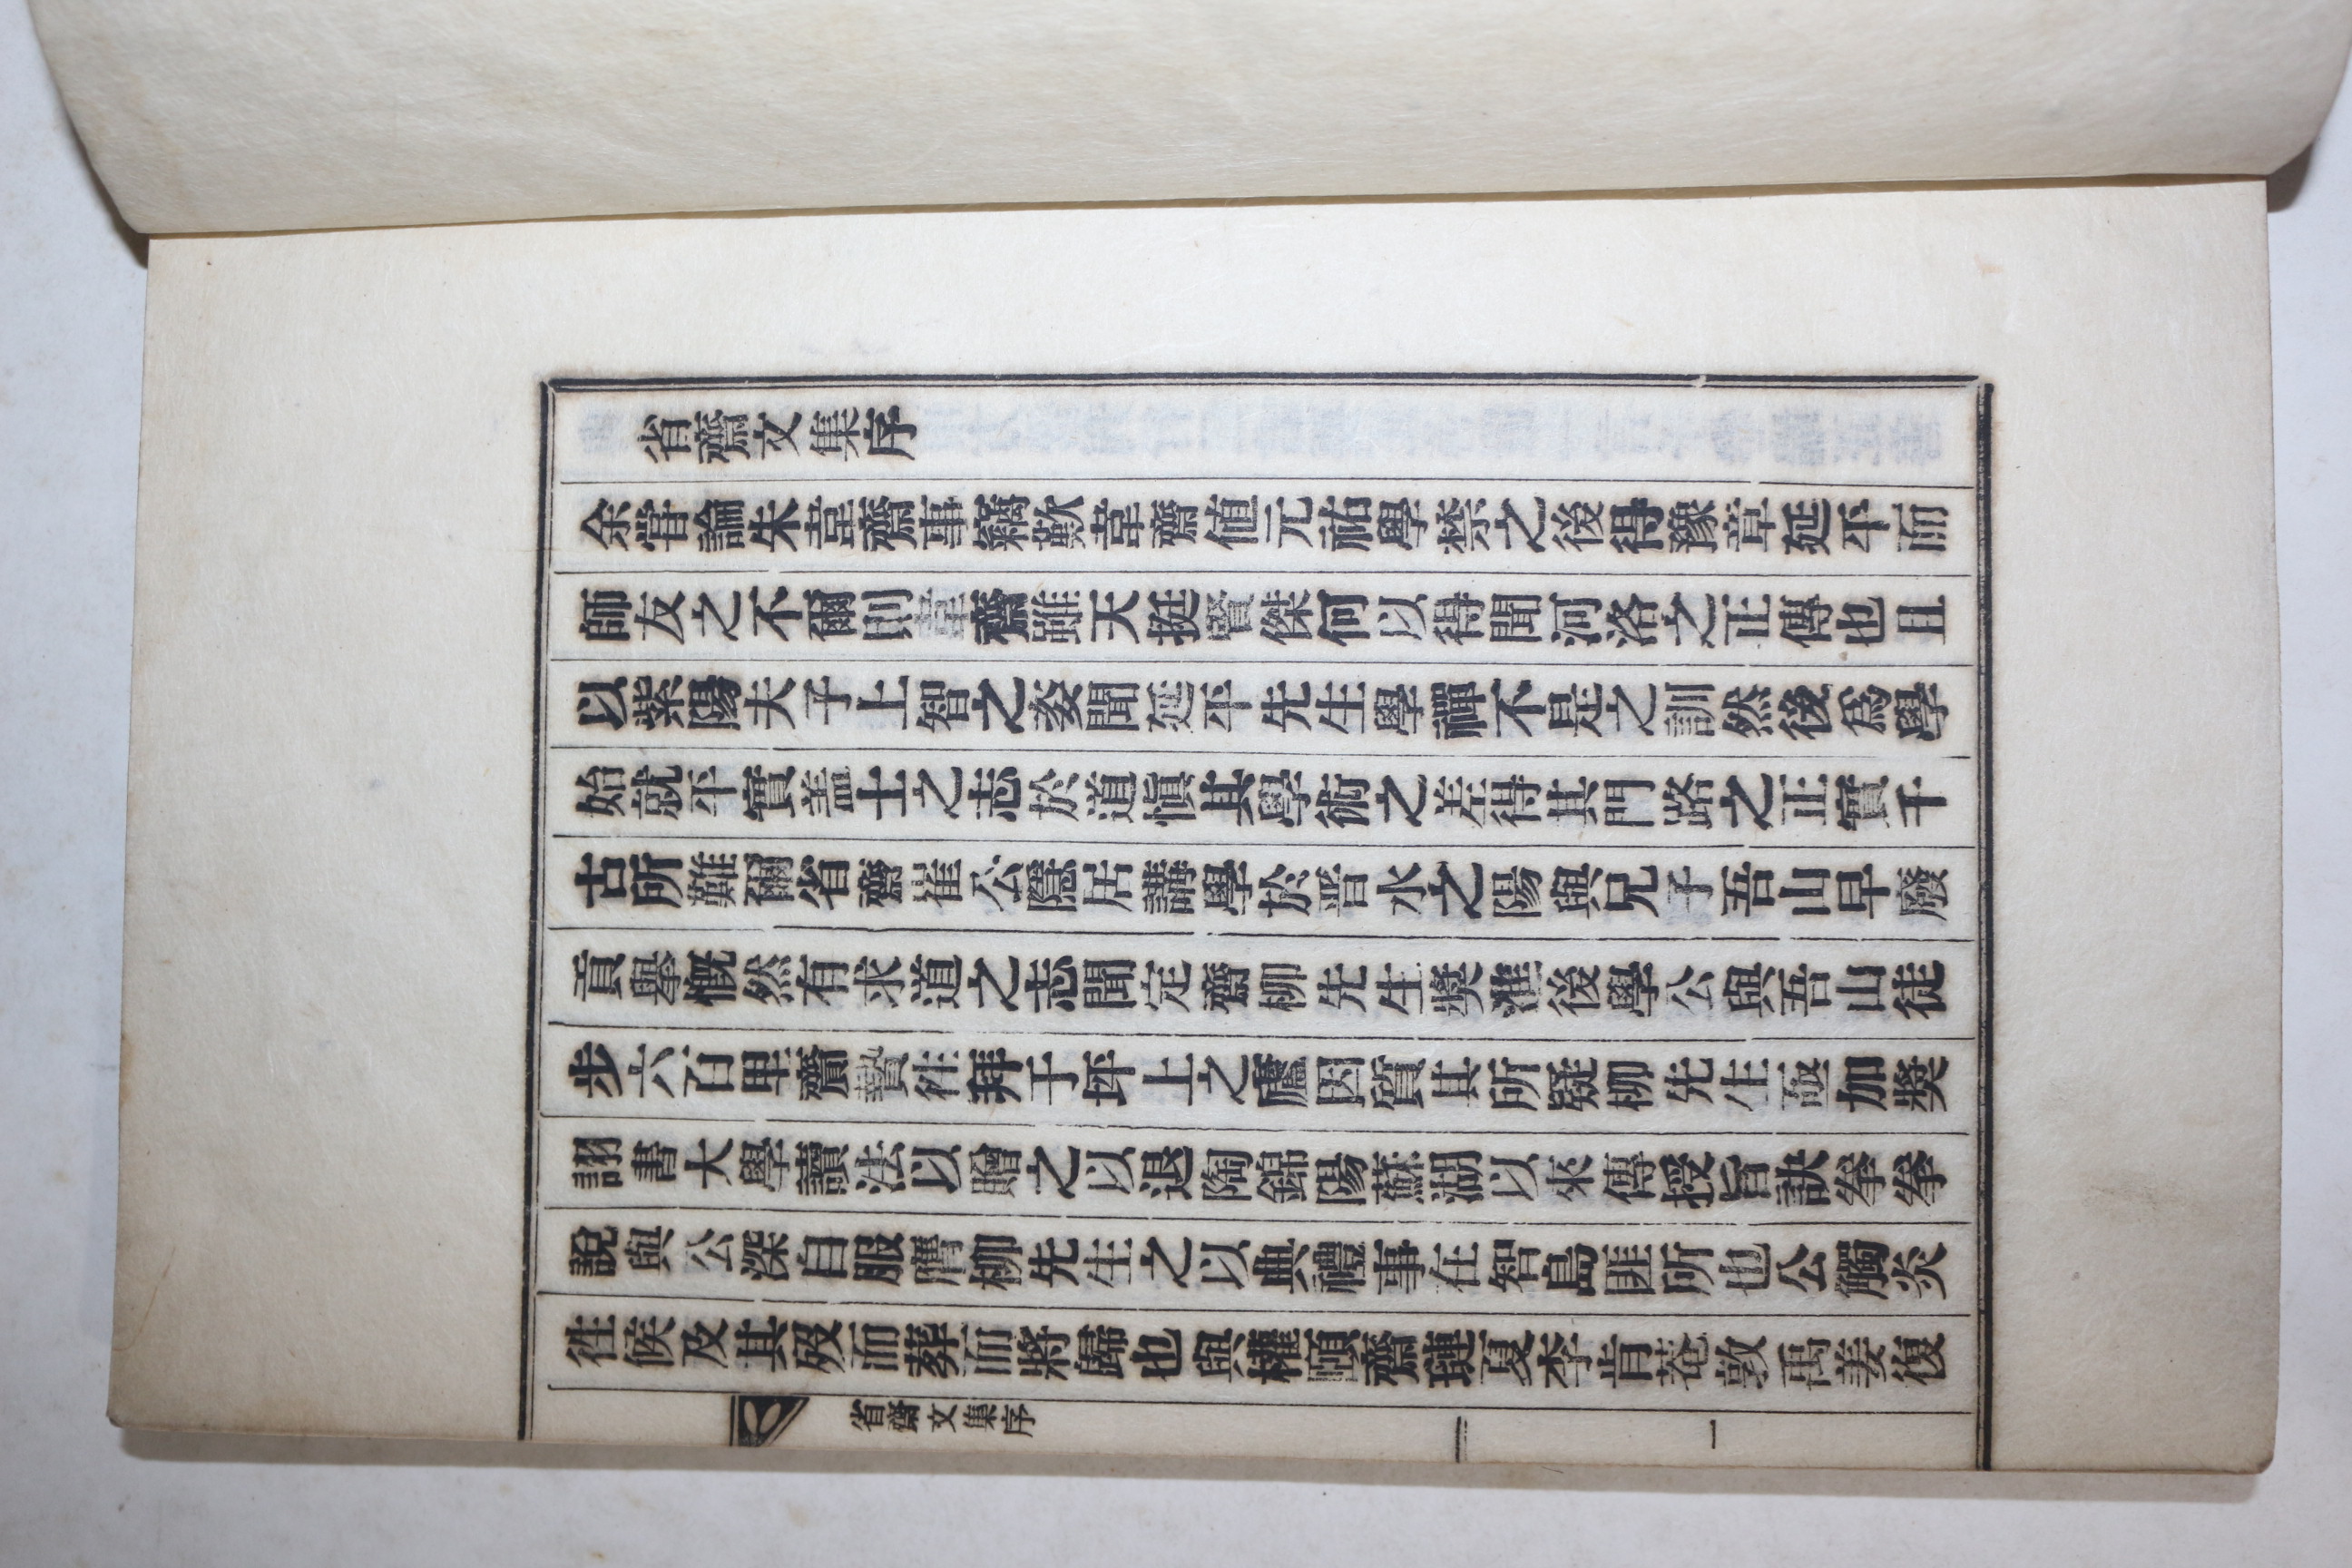 省齋文集序
余甞論朱韋齋事竊歎韋齋値元祐學禁之後得豫章延平而
師友之不爾則韋齋雖天挺賢傑何以得聞河洛之正傳也且
以紫陽夫子上智之姿聞延平先生學禪不是之訓然後爲學
始就平實盖士之志於道愼其學術之差得其門路之正實千
古所難爾省齋崔公隱居講學於晋水之陽與兄子吾山早廢
貢擧慨然有求道之志聞定齋柳先生奬進後學公與吾山徒
步六百里齎贄徃拜于坪上之廬因質其所疑柳先生亟加奬
詡書大學讀法以贈之以退陶錦陽蘇湖以來傳授旨訣拳拳
說與公深自服膺柳先生之以典禮事在智島匪所也公觸炎
徃候及其歿而葬而將歸也與權頤齋璉夏李肯菴敦禹姜復
省齋文集序
一